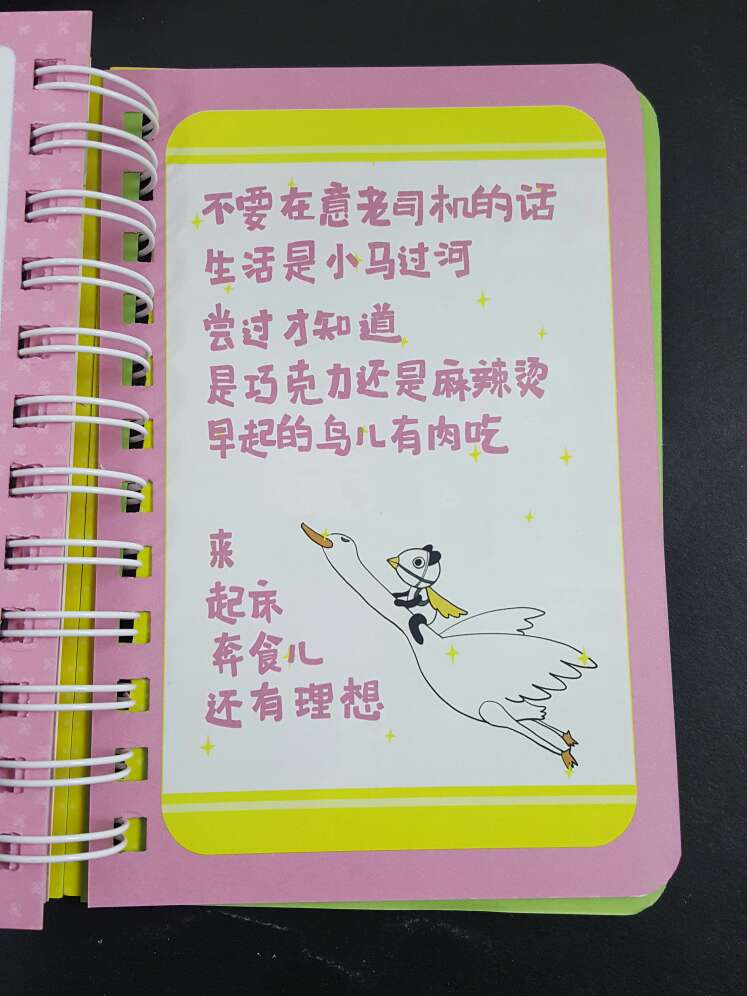 不要在意老司机的话
生活是小马过河
尝过才知道
是巧克力还是麻辣烫
早起的鸟儿有肉吃
来
起床
奔食儿
还有理想